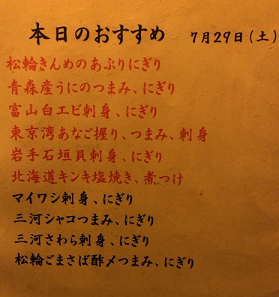 本日のおすすめ 7月29日(土)
松輪きんめのあぶりにぎり
青森産うにのつまみ、にぎり
富山白エビ刺身、にぎり
東京湾あなご握り、つまみ、刺身
岩手石垣貝刺身、にぎり
北海道キンキ塩焼き、煮つけ
マイワシ刺身、にぎり
三河シャコつまみ、にぎり
三河さわら刺身、にぎり
松輪ごまさば酢〆つまみ、にぎり